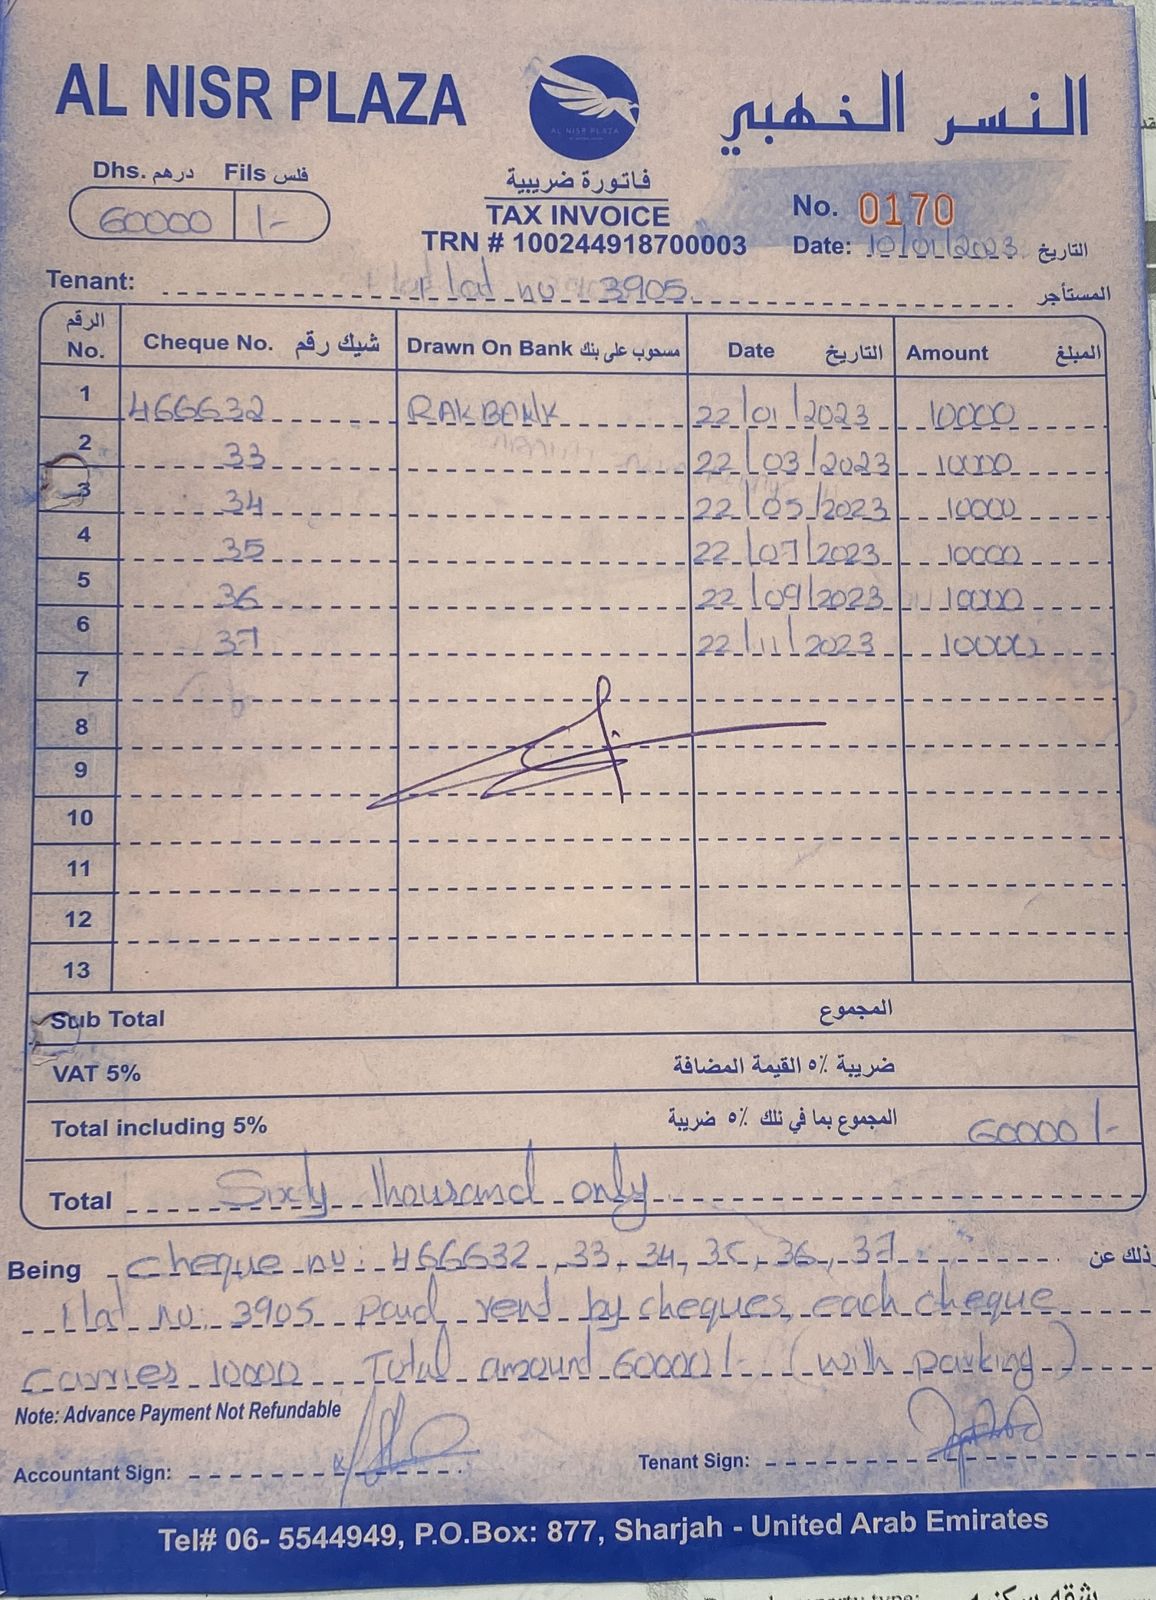 AL NISR PLAZA
AL NISR PLAZA
النسر الخهبي
Dhs. درهم Fils فلس
60000 /-
فاتورة ضريبية
TAX INVOICE
TRN # 100244918700003
No. 0170
Date: 10/01/2023 التاريخ
Tenant: flat no 3905 المستأجر
الرقم No. Cheque No. شيك رقم Drawn On Bank مسحوب على بنك Date التاريخ Amount المبلغ
1 466632 RAKBANK 22/01/2023 10000
2 33 22/03/2023 10000
3 34 22/05/2023 10000
4 35 22/07/2023 10000
5 36 22/09/2023 10000
6 37 22/11/2023 10000
7
8
9
10
11
12
13
Sub Total المجموع
VAT 5% ضريبة ٥٪ القيمة المضافة
Total including 5% المجموع بما في نلك ٥٪ ضريبة 60000/-
Total Sixty thousand only
Being cheque no: 466632, 33, 34, 35, 36, 37 وذلك عن
flat no: 3905 Paid rent by cheques, each cheque
Carries 10000 Total amound 60000/- (with parking)
Note: Advance Payment Not Refundable
Accountant Sign: Tenant Sign:
Tel# 06- 5544949, P.O.Box: 877, Sharjah - United Arab Emirates
شقه سكنيه